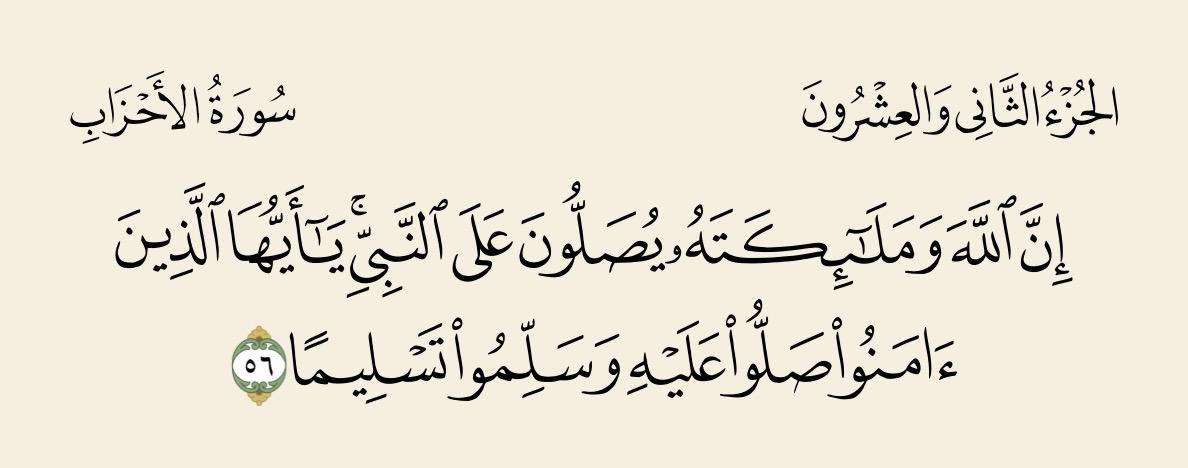 الجُزْءُ الثَّانِى وَالعِشْرُونَ
سُورَةُ الأَحْزَابِ
إِنَّ ٱللَّهَ وَمَلَـٰٓئِكَتَهُۥ يُصَلُّونَ عَلَى ٱلنَّبِىِّ ۚ يَـٰٓأَيُّهَا ٱلَّذِينَ
ءَامَنُوا۟ صَلُّوا۟ عَلَيْهِ وَسَلِّمُوا۟ تَسْلِيمًا ٥٦